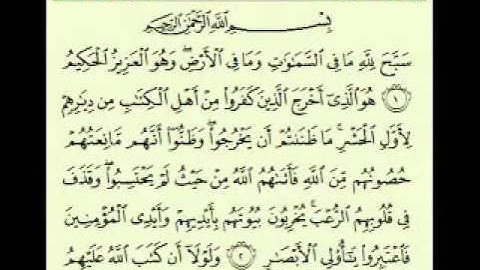 بِسْمِ ٱللَّهِ ٱلرَّحْمَـٰنِ ٱلرَّحِيمِ
سَبَّحَ لِلَّهِ مَا فِى ٱلسَّمَـٰوَٰتِ وَمَا فِى ٱلْأَرْضِ ۖ وَهُوَ ٱلْعَزِيزُ ٱلْحَكِيمُ
١ هُوَ ٱلَّذِىٓ أَخْرَجَ ٱلَّذِينَ كَفَرُوا۟ مِنْ أَهْلِ ٱلْكِتَـٰبِ مِن دِيَـٰرِهِمْ
لِأَوَّلِ ٱلْحَشْرِ ۚ مَا ظَنَنتُمْ أَن يَخْرُجُوا۟ ۖ وَظَنُّوٓا۟ أَنَّهُم مَّانِعَتُهُمْ
حُصُونُهُم مِّنَ ٱللَّهِ فَأَتَىٰهُمُ ٱللَّهُ مِنْ حَيْثُ لَمْ يَحْتَسِبُوا۟ ۖ وَقَذَفَ
فِى قُلُوبِهِمُ ٱلرُّعْبَ ۚ يُخْرِبُونَ بُيُوتَهُم بِأَيْدِيهِمْ وَأَيْدِى ٱلْمُؤْمِنِينَ
فَٱعْتَبِرُوا۟ يَـٰٓأُو۟لِى ٱلْأَبْصَـٰرِ ٢ وَلَوْلَآ أَن كَتَبَ ٱللَّهُ عَلَيْهِمُ